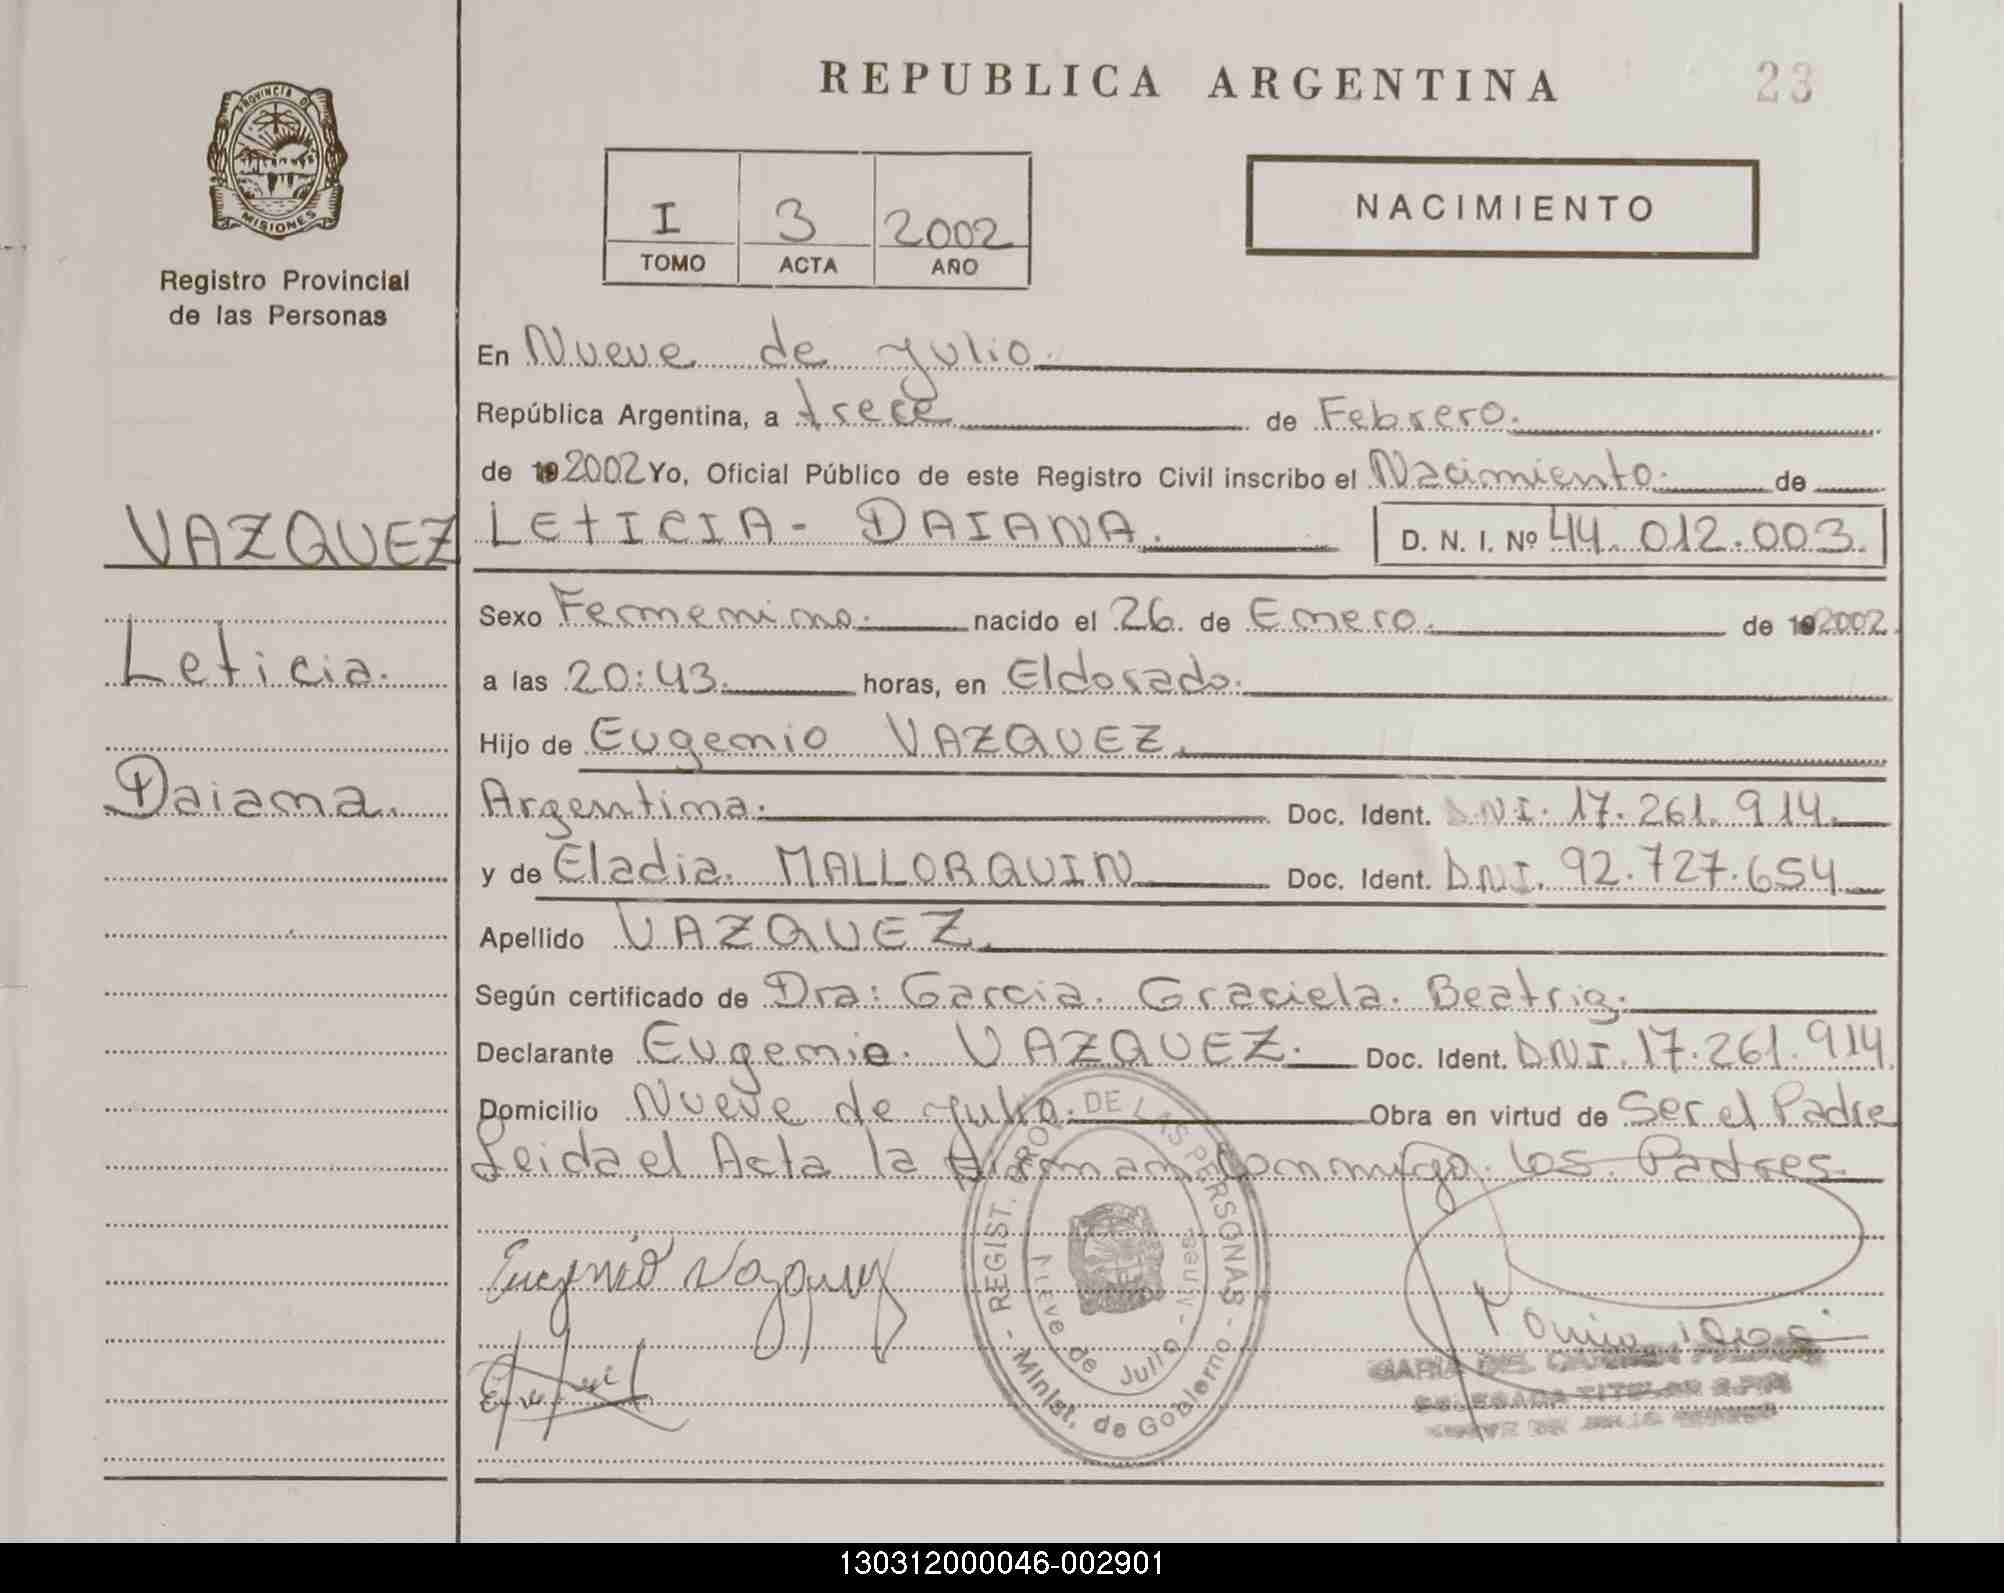 REPUBLICA ARGENTINA
23
PROVINCIA D
MISIONES
Registro Provincial
de las Personas
I 3 2002
TOMO ACTA AÑO
NACIMIENTO
En Nueve de Julio.
República Argentina, a trece de Febrero.
de 19 2002 Yo, Oficial Público de este Registro Civil inscribo el Nacimiento. de
VAZQUEZ LETICIA - DAIANA. D. N. I. Nº 44.012.003.
Sexo Femenino. nacido el 26. de Enero. de 19 2002.
Leticia.
a las 20:43. horas, en Eldorado.
Hijo de Eugenio VAZQUEZ.
Daiana.
Argentina. Doc. Ident. DNI. 17.261.914.
y de Eladia. MALLORQUIN Doc. Ident. DNI. 92.727.654
Apellido VAZQUEZ.
Según certificado de Dra: Garcia. Graciela. Beatriz.
Declarante Eugenio. VAZQUEZ. Doc. Ident. DNI. 17.261.914
Domicilio Nueve de Julio. Obra en virtud de Ser el Padre
Leida el Acta la Firman Conmigo. los. Padres.
REGIST. PROV. DE LAS PERSONAS - Minist. de Gobierno -
Nueve de Julio - Mnes.
Eugenio Vazquez
MARIA DEL CARMEN
DELEGADA TITULAR R.P.P.
NUEVE DE JULIO
130312000046-002901